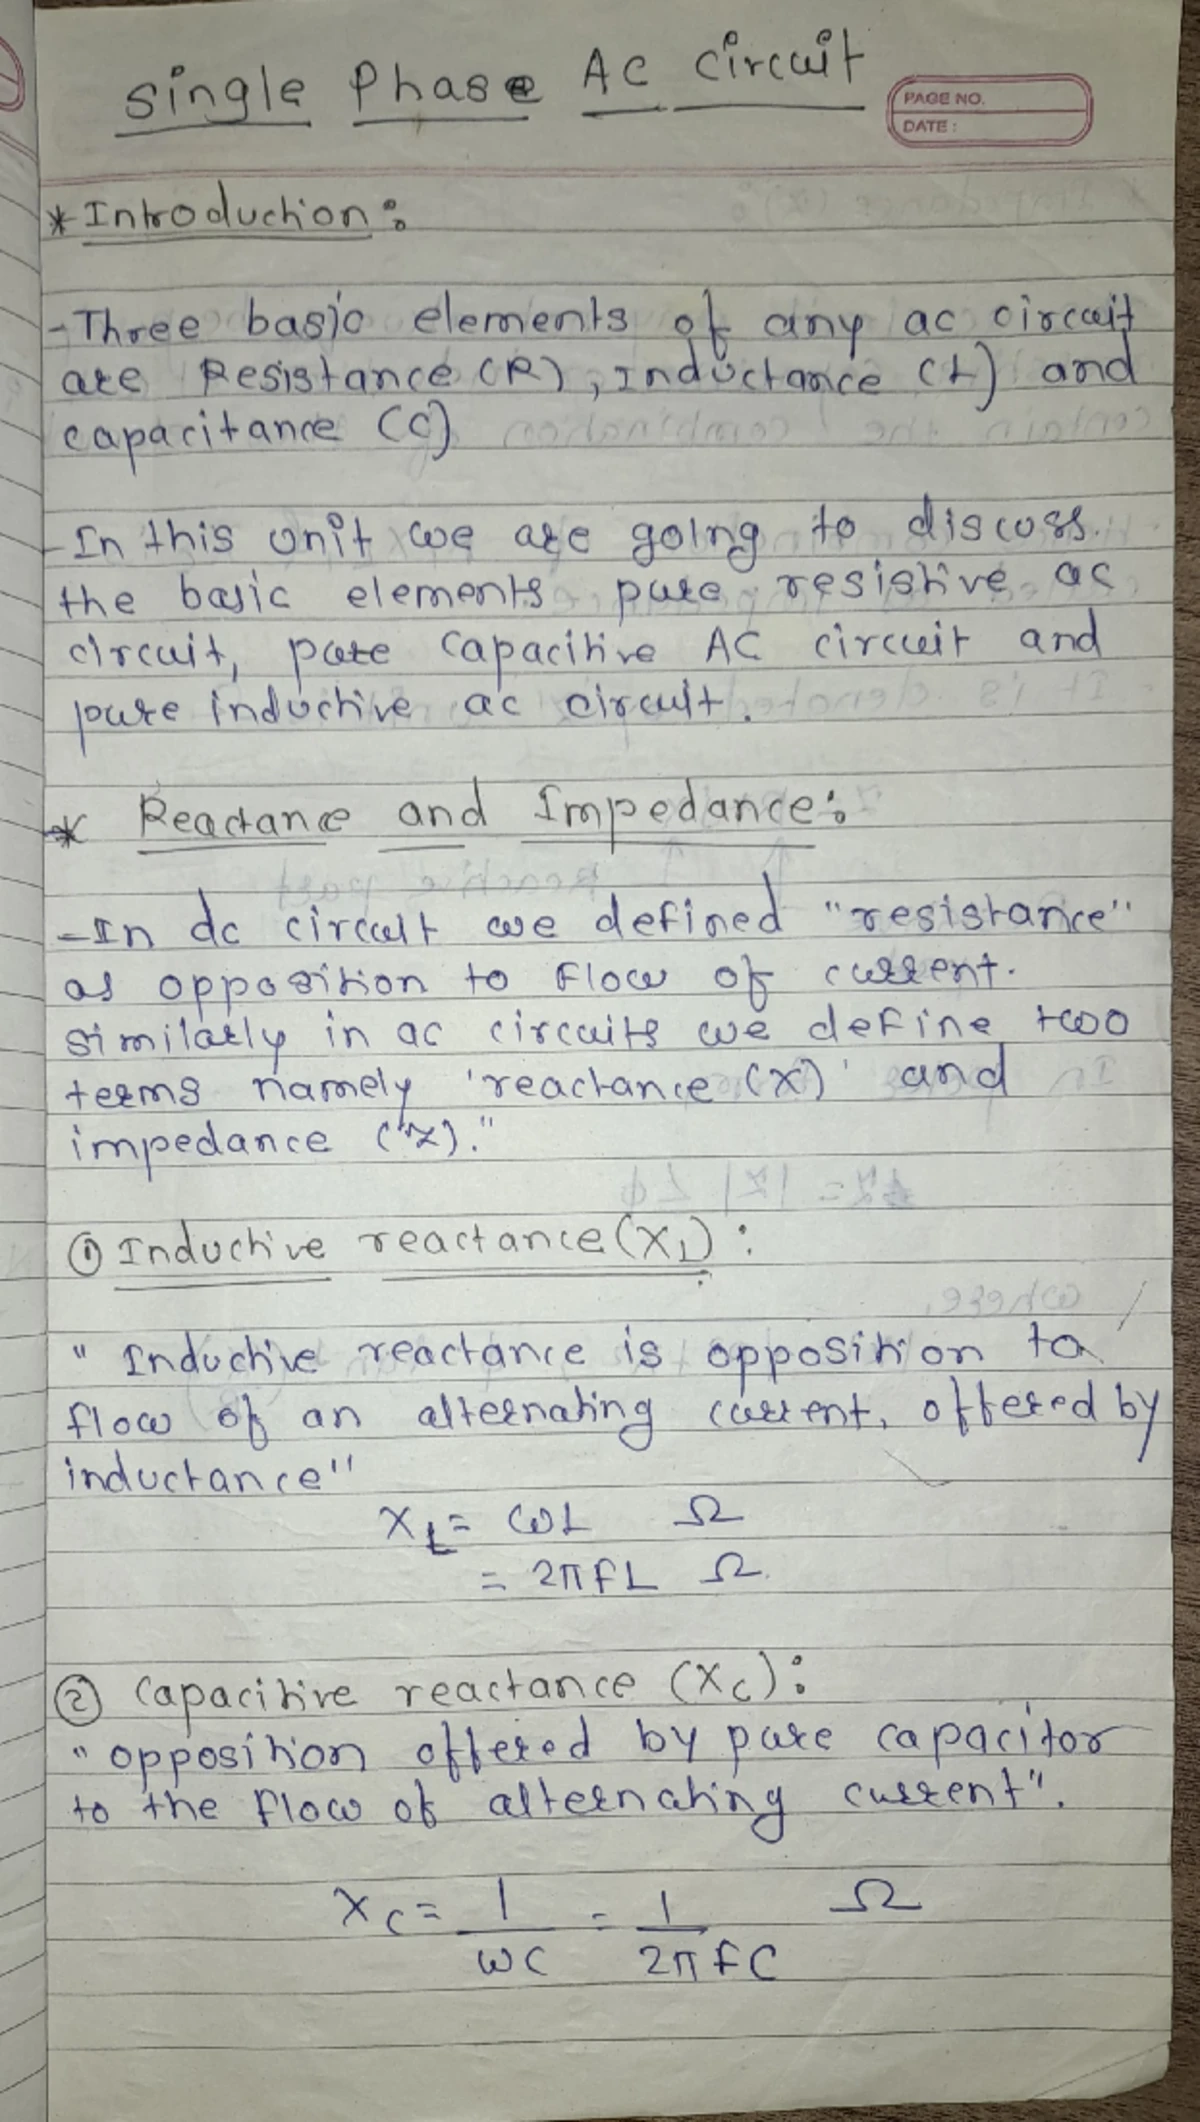 Single Phase AC Circuit
PAGE NO.
DATE:
* Introduction:
- Three basic elements of any ac circuit
are Resistance (R), Inductance (L) and
capacitance (C)
- In this unit we are going to discuss.
the basic elements, pure resistive ac
circuit, pure capacitive AC circuit and
pure inductive ac circuit.
* Reactance and Impedance:
- In dc circuit we defined "resistance"
as opposition to flow of current.
similarly in ac circuits we define two
terms namely 'reactance (X)' and
impedance ("Z)."
① Inductive reactance (XL):
" Inductive reactance is opposition to
flow of an alternating current, offered by
inductance"
XL = ωL Ω
= 2πfL Ω.
② Capacitive reactance (Xc):
" opposition offered by pure capacitor
to the flow of alternating current".
Xc = 1/ωC = 1/2πfC Ω